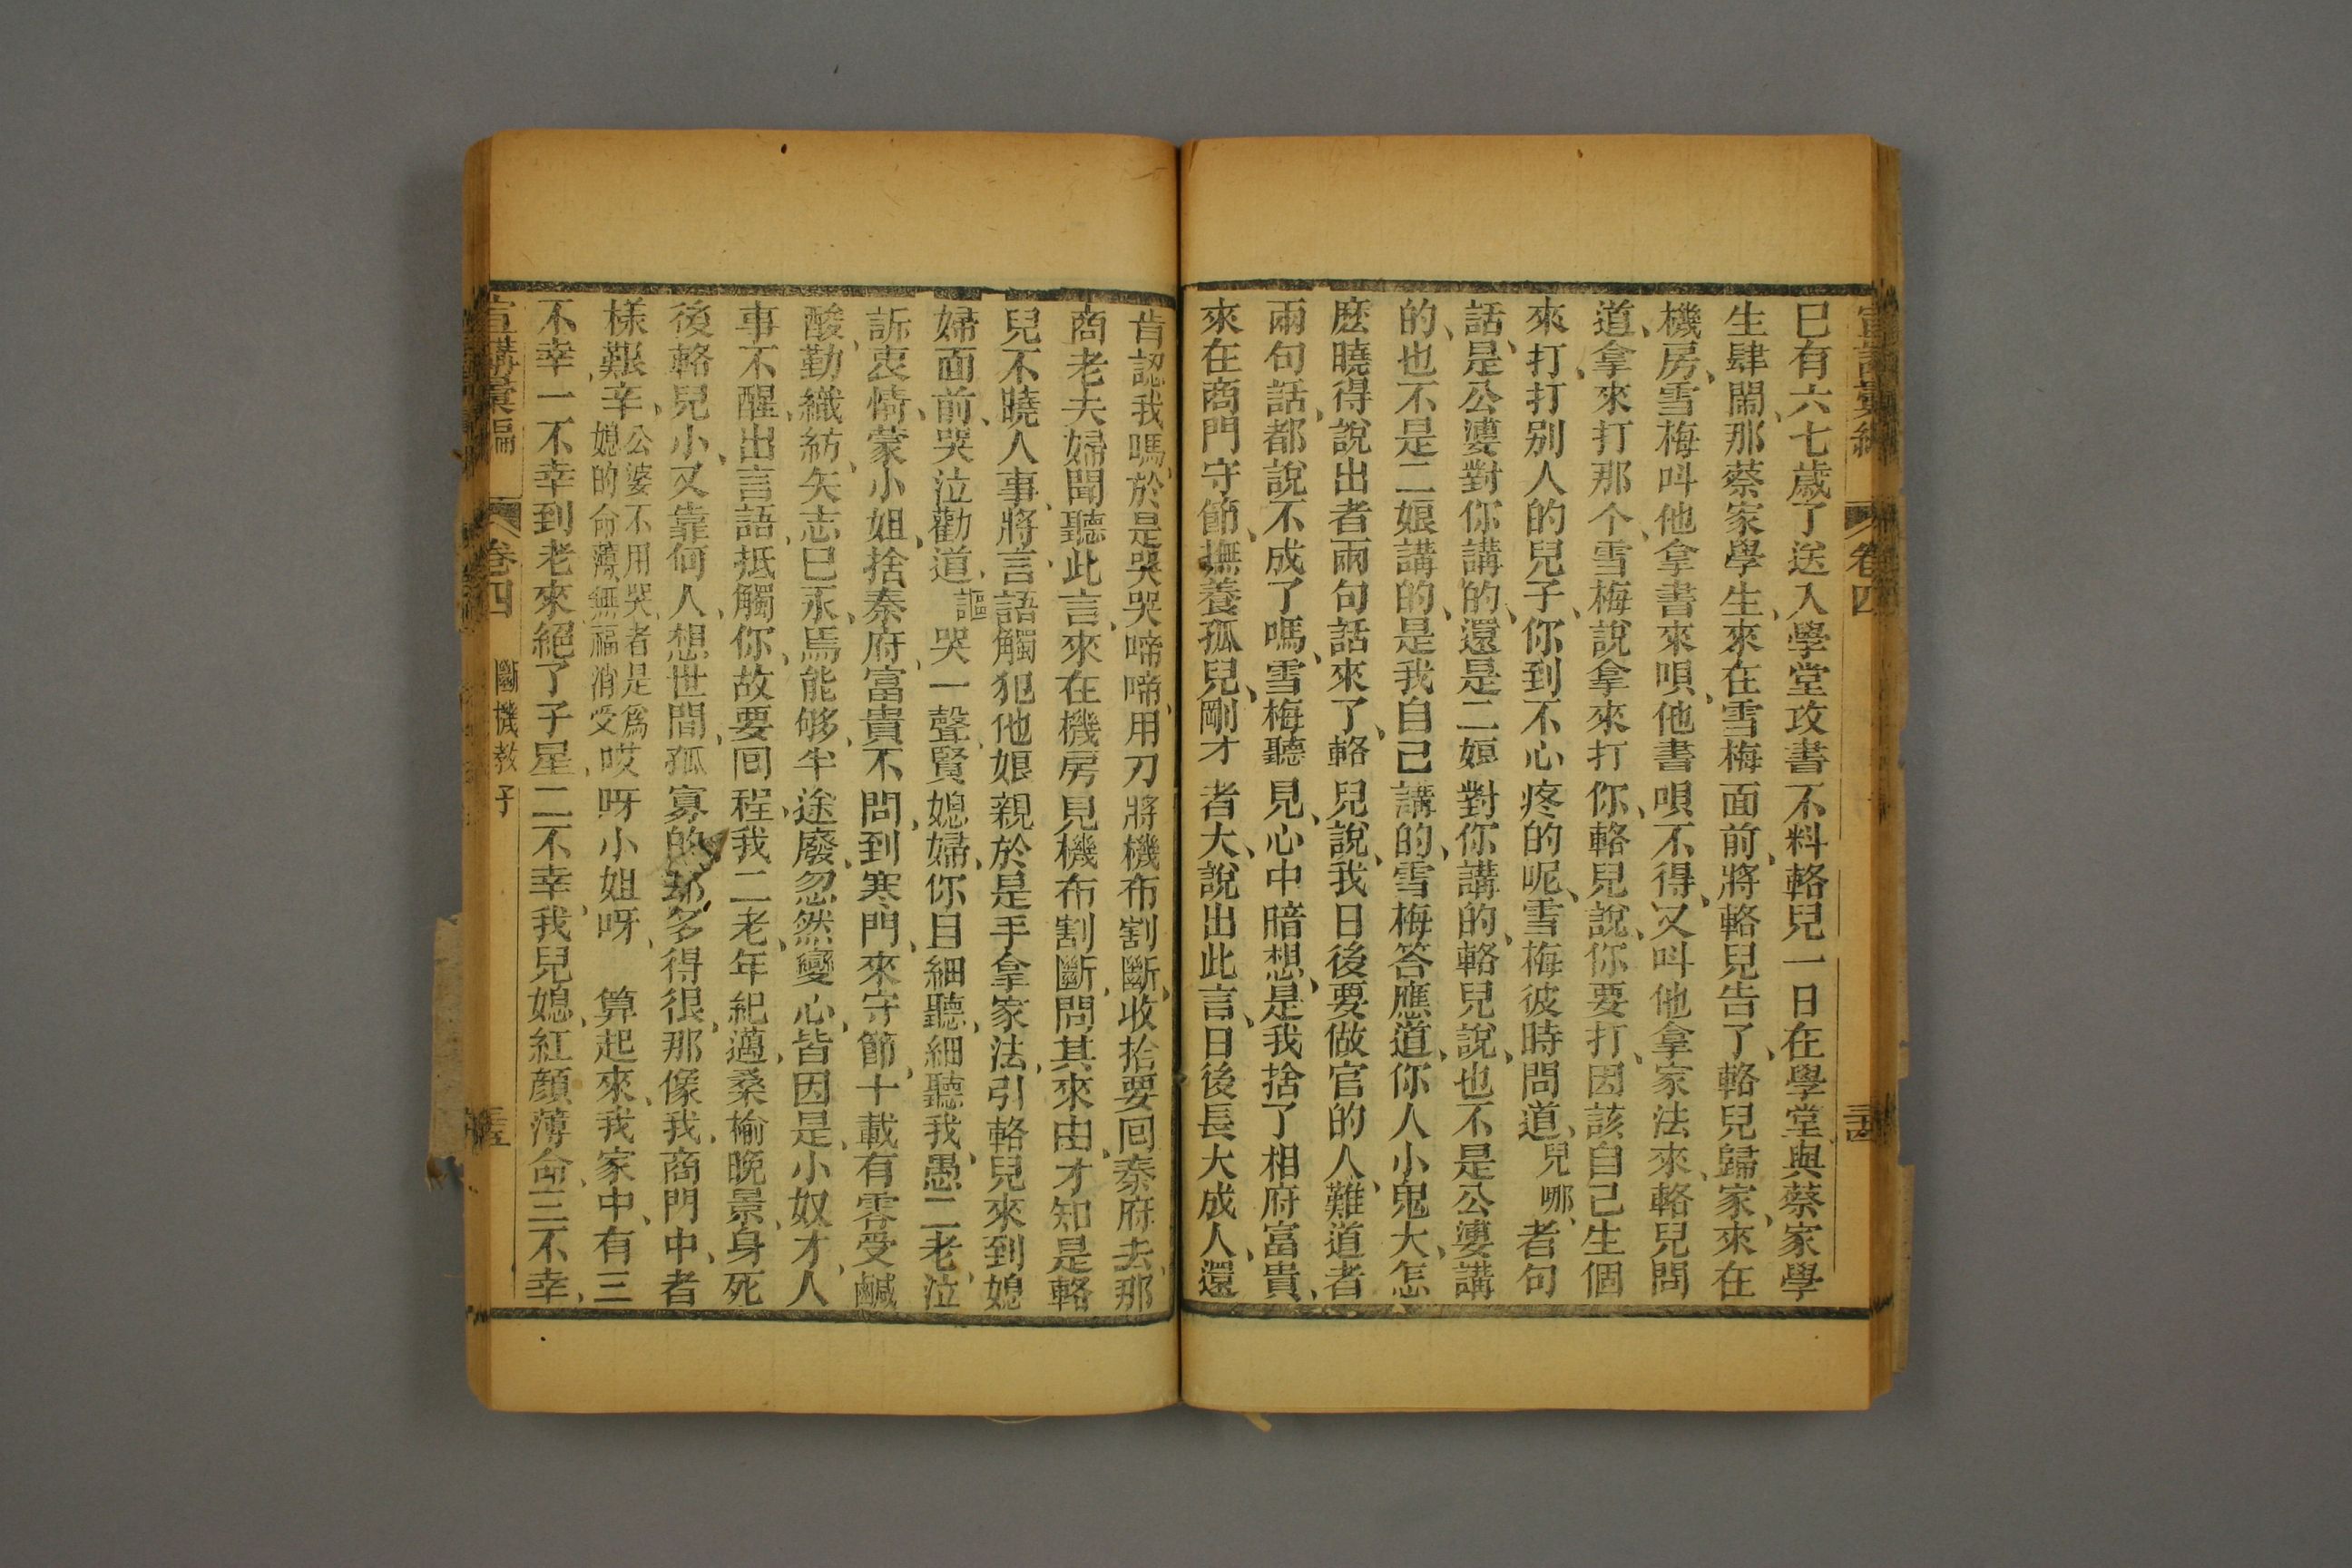 宣講彙編 卷四
已有六七歲了送入學堂攻書不料輅兒一日在學堂與蔡家學
生肆鬧、那蔡家學生、來在雪梅面前、將輅兒告了、輅兒歸家、來在
機房、雪梅叫他拿書來唄、他書唄不得、又叫他拿家法來、輅兒問
道、拿來打那个、雪梅說拿來打你、輅兒說、你要打、因該自己生個
來、打、打别人的兒子、你到不心疼的呢、雪梅彼時問道、兒哪、者句
話、是公婆對你講的、還是二娘對你講的、輅兒說、也不是公婆講
的、也不是二娘講的、是我自己講的、雪梅答應道、你人小鬼大、怎
麽曉得說出者兩句話來了、輅兒說、我日後要做官的人、難道者
兩句話、都說不成了嗎、雪梅聽見、心中暗想、是我捨了相府富貴、
來在商門守節、撫養孤兒、剛才者大、說出此言、日後長大成人、還
肯認我嗎、於是哭哭啼啼、用刀將機布割斷、收拾要囘秦府去、那
商老夫婦聞聽此言、來在機房見機布割斷、問其來由、才知是輅
兒不曉人事、將言語觸犯他娘親於是手拿家法、引輅兒來到媳
婦面前、哭泣勸道、謳哭一聲、賢媳婦、你且細聽、細聽我、愚二老、泣
訴衷情、蒙小姐、捨秦府、富貴不問、到寒門、來守節、十載有零受鹹
酸、勤織紡、矢志已永、焉能够、半途廢、忽然變心、皆因是、小奴才、人
事不醒、出言語、抵觸你、故要囘程、我二老、年紀邁、桑榆晚景、身死
後、輅兒小、又靠何人、想世間、孤寡的、却多得很、那像我、商門中、者
樣艱辛、公婆不用哭、者是爲媳的命薄、無福消受哎呀小姐呀、算起來、我家中、有三
不幸一不幸到老來、絕了子星、二不幸、我兒媳、紅顔薄命、三不幸、
宣講彙編 卷四 斷機教子